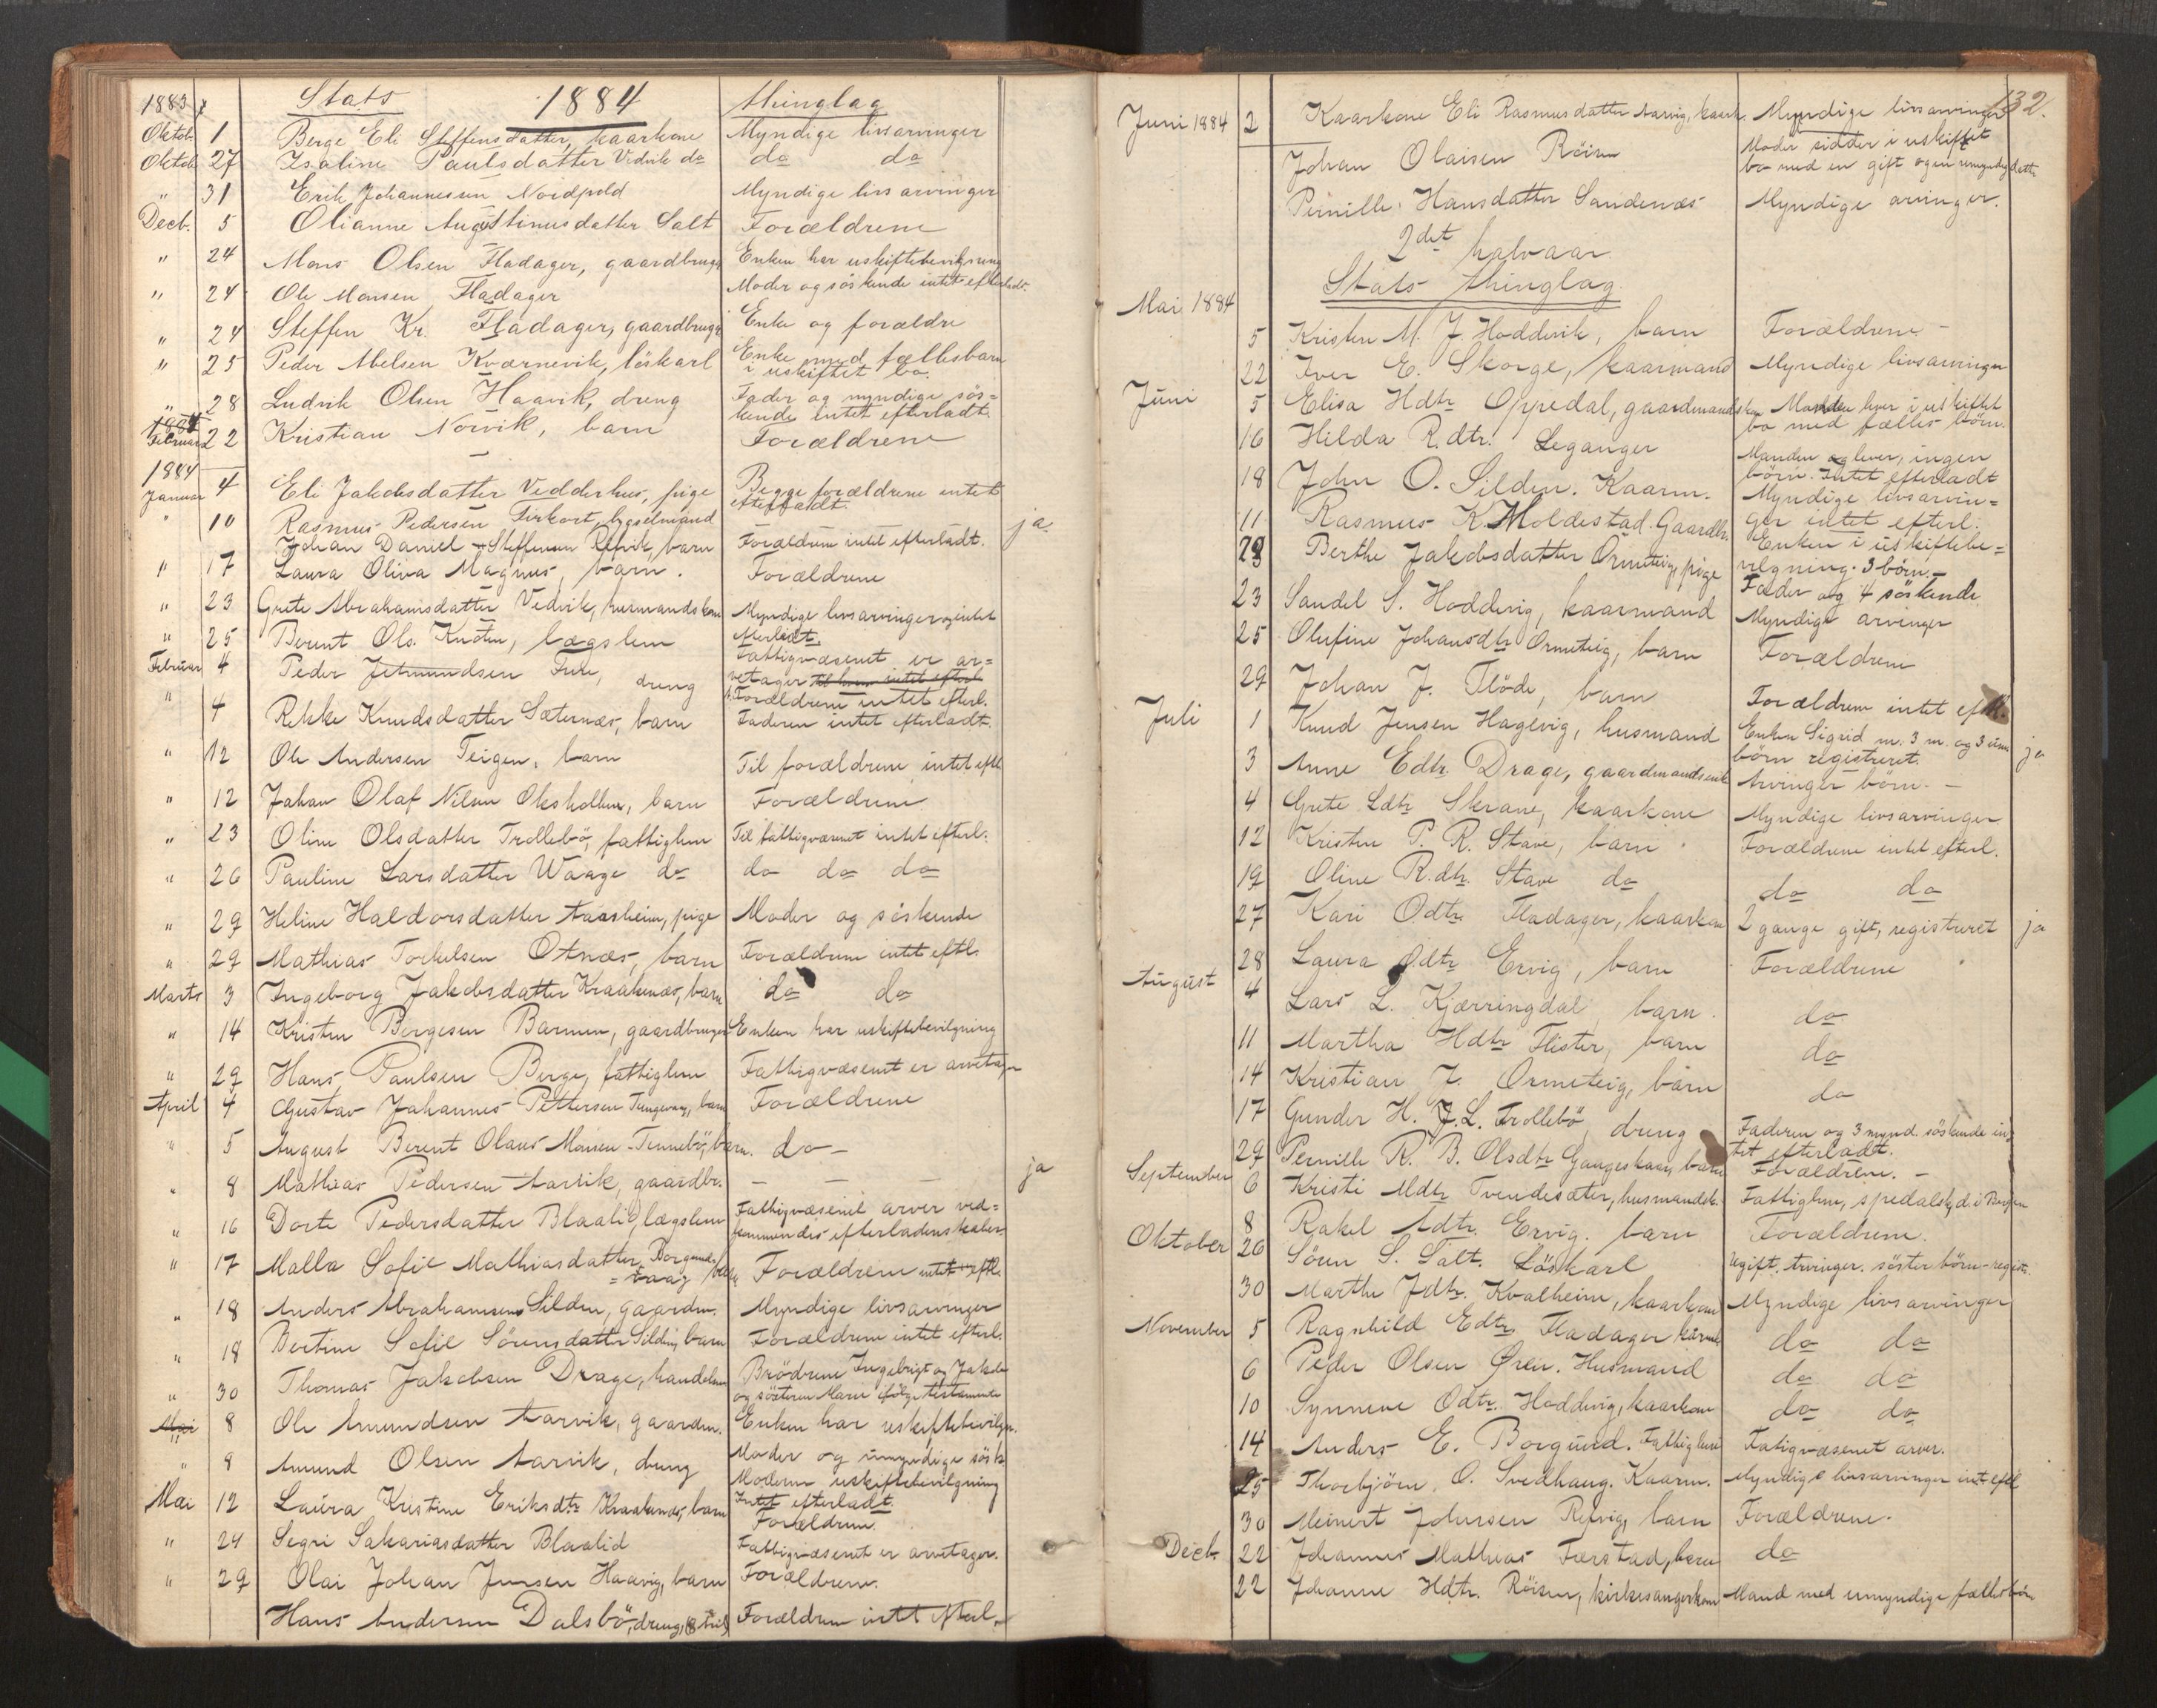 1883 Stats 1884 Thinglag
Oktob. 1 Berge Eli Steffensdatter, kaarkone Myndige livsarvinger
Oktob. 27 Isaline Paulsdatter Vedvik do do do
" 31 Erik Johannesen Nordpold Myndige livsarvinger
Decb. 5 Olianne Augustinusdatter Salt Forældrene
" 24 Mons Olsen Fladager, gaardbruger Enken har uskiftebevilgning
" 24 Ole Monsen Fladager Moder og söskende intet efterladt.
" 24 Steffen Kr. Fladager, gaardbruger Enke og forældre
" 25 Peder Abelsen Kværnevik, löskarl Enke med fællesbarn
i uskiftet bo.
" 28 Ludvik Olsen Haavik, dreng Fader og myndige sös=
kende intet efterladt.
1884 Februar 22 Kristian Norvik, barn Forældrene
1884
Januar 4 Eli Jakobsdatter Vedderhus, pige Begge forældrene intet
efterladt.
" 10 Rasmus Pedersen bygselmand ja
Johan Daniel Steffensen Refvik, barn Forældrene intet efterladt.
" 17 Laura Oliva Magnus, barn. Forældrene
" 23 Grete Abrahamsdatter Vedvik, husmandskone Myndige livsarvinger intet
efterladt.
" 25 Berent Ols. lægslem Fattigvæsenet er ar=
vetager
Februar 4 Peder dreng Forældrene intet efterl.
" 4 Rikke Knudsdatter Sæternæs, barn Faderen intet efterladt.
" 12 Ole Andersen Teigen, barn Til forældrene intet eftl.
" 12 Johan Olaf Nilsen Oksholmen, barn Forældrene
" 23 Oline Olsdatter Trollebö, fattiglem Til fattigvæsenet intet efterl.
" 26 Pauline Larsdatter Waage do do do do
" 29 Heline Haldorsdatter Aarsheim, pige Moder og söskende
" 29 Mathias Torkelsen Otnæs, barn Forældrene intet eftl.
Marts 3 Ingeborg Jakobsdatter Kraakenæs, barn do do
" 14 Kristen Börgesen Barmen, gaardbruger Enken har uskiftebevilgning
" 29 Hans Paulsen Berge, fattiglem Fattigvæsenet er arvetager
April 4 Gustav Johannes Pettersen Tungevaag, barn Forældrene
" 5 August Berent Olaus Monsen Tennebö, barn. do –
" 8 Mathias Pedersen Aarvik, gaardbr. – – – ja
" 16 Dorte Pedersdatter Blaalid, lægslem Fattigvæsenet arver ved=
kommendes efterladenskaber
" 17 Malla Sofie Mathiasdatter Borgund=
vaag barn Forældrene intet eftl.
" 18 Anders Abrahamsen Silden, gaardm. Myndige livsarvinger
" 18 Bertine Sofie Sörensdatter Silden, barn Forældrene intet efterl.
" 30 Thomas Jakobsen Drage, handelsm. Brödrene Ingebrigt og Jakob
og sösteren Marie ifölge testamente
Mai 8 Ole Amundsen Aarvik, gaardm. Enken har uskiftebevilgn.
" 8 Amund Olsen Aarvik, dreng Moder og umyndige sösk.
Moderen uskiftebevilgning
Mai 12 Laura Kristine Eriksdtr Kraakenæs, barn Intet efterladt.
Forældrene
" 24 Segri Sakariasdatter Blaalid Fattigvæsenet er arvetager.
" 29 Olai Johan Jensen Haavig, barn Forældrene.
Hans Andersen Dalsbö, dreng, Forældrene intet efterl.
132.
Juni 1884 2 Kaarkone Eli Rasmusdatter Aarvig, kaark. Myndige livsarvinger
Johan Olaisen Röisen Moder sidder i uskiftet
bo med en gift og en umyndig datter
Pernille Hansdatter Sandenæs Myndige arvinger.
2det halvaar
Stats thinglag
Mai 1884
5 Kristen M. J. Hoddevik, barn Forældrene –
22 Iver E. Skorge, kaarmand Myndige livsarvinger
Juni 5 Elisa Hdtr Oppedal, gaardmandsk. Manden lever i uskiftet
bo med fælles börn.
16 Hilda R.dtr. Leganger Manden lever, ingen
börn. Intet efterladt
18 John O. Silden. Kaarm. Myndige livsarvin=
ger intet efterl.
11 Rasmus K. Moldestad. Gaardbr. Enken i uskiftebe=
vilgning. 3 börn. –
29 Berthe Jakobsdatter Ormeteig, pige Fader og 4 söskende
23 Sandel S. Hoddevig, kaarmand Myndige arvinger
25 Olufine Johansdtr Ormeteig, barn Forældrene
29 Johan J. Flöde, barn Forældrene intet eftl.
Juli 1 Knud Jensen Hagevig, husmand Enken Sigrid m. 3 m. og 3 um.
börn registreret. ja
3 Anne Edtr. Drage, gaardmandsenke Arvinger börn. –
4 Grete Ldtr Skrane, kaarkone Myndige livsarvinger
12 Kristen P. R. Stave, barn Forældrene intet efterl.
19 Oline R.dtr. Stave do do do
27 Kari Odtr Fladager, kaarkone 2 gange gift, registreret ja
28 Laura Odtr Ervig, barn Forældrene
August 4 Lars L. Kjærringdal barn. do
11 Martha Hdtr Flister, barn do
14 Kristian J. Ormeteig, barn do
17 Gunder H. J. L. Trollebö dreng Faderen og 3 mynd. söskende in=
tet efterladt.
29 Pernille R. B. Olsdtr Gangeskaar, barn Forældrene. –
September 6 Kristi Mdtr Tvendesæter, husmandsk. Fattiglem, spedalsk, d. i Bergen
8 Rakel Adtr. Ervig. barn Forældrene.
Oktober 26 Sören S. Salt. Löskarl Ugift. Arvinger. söster börn – registr.
30 Marthe Jdtr. Kvalheim, kaarkone Myndige livsarvinger
November 5 Ragnhild Edtr Fladager do do
6 Peder Olsen Ören. Husmand do do
10 Synneve Odtr. Hoddevig, kaarkone do do
14 Anders E. Borgund. Fattiglem Fatigvæsenet arver.
25 Thorbjörn O. Svedhaug. Kaarm. Myndige livsarvinger int. eftl
30 Meinert Johnsen Refvig, barn Forældrene.
Decb. 22 Johannes Mathias Færstad, barn do
22 Johanne Hdtr. Röisen, kirkesangerkone Mand med umyndige fællesbörn